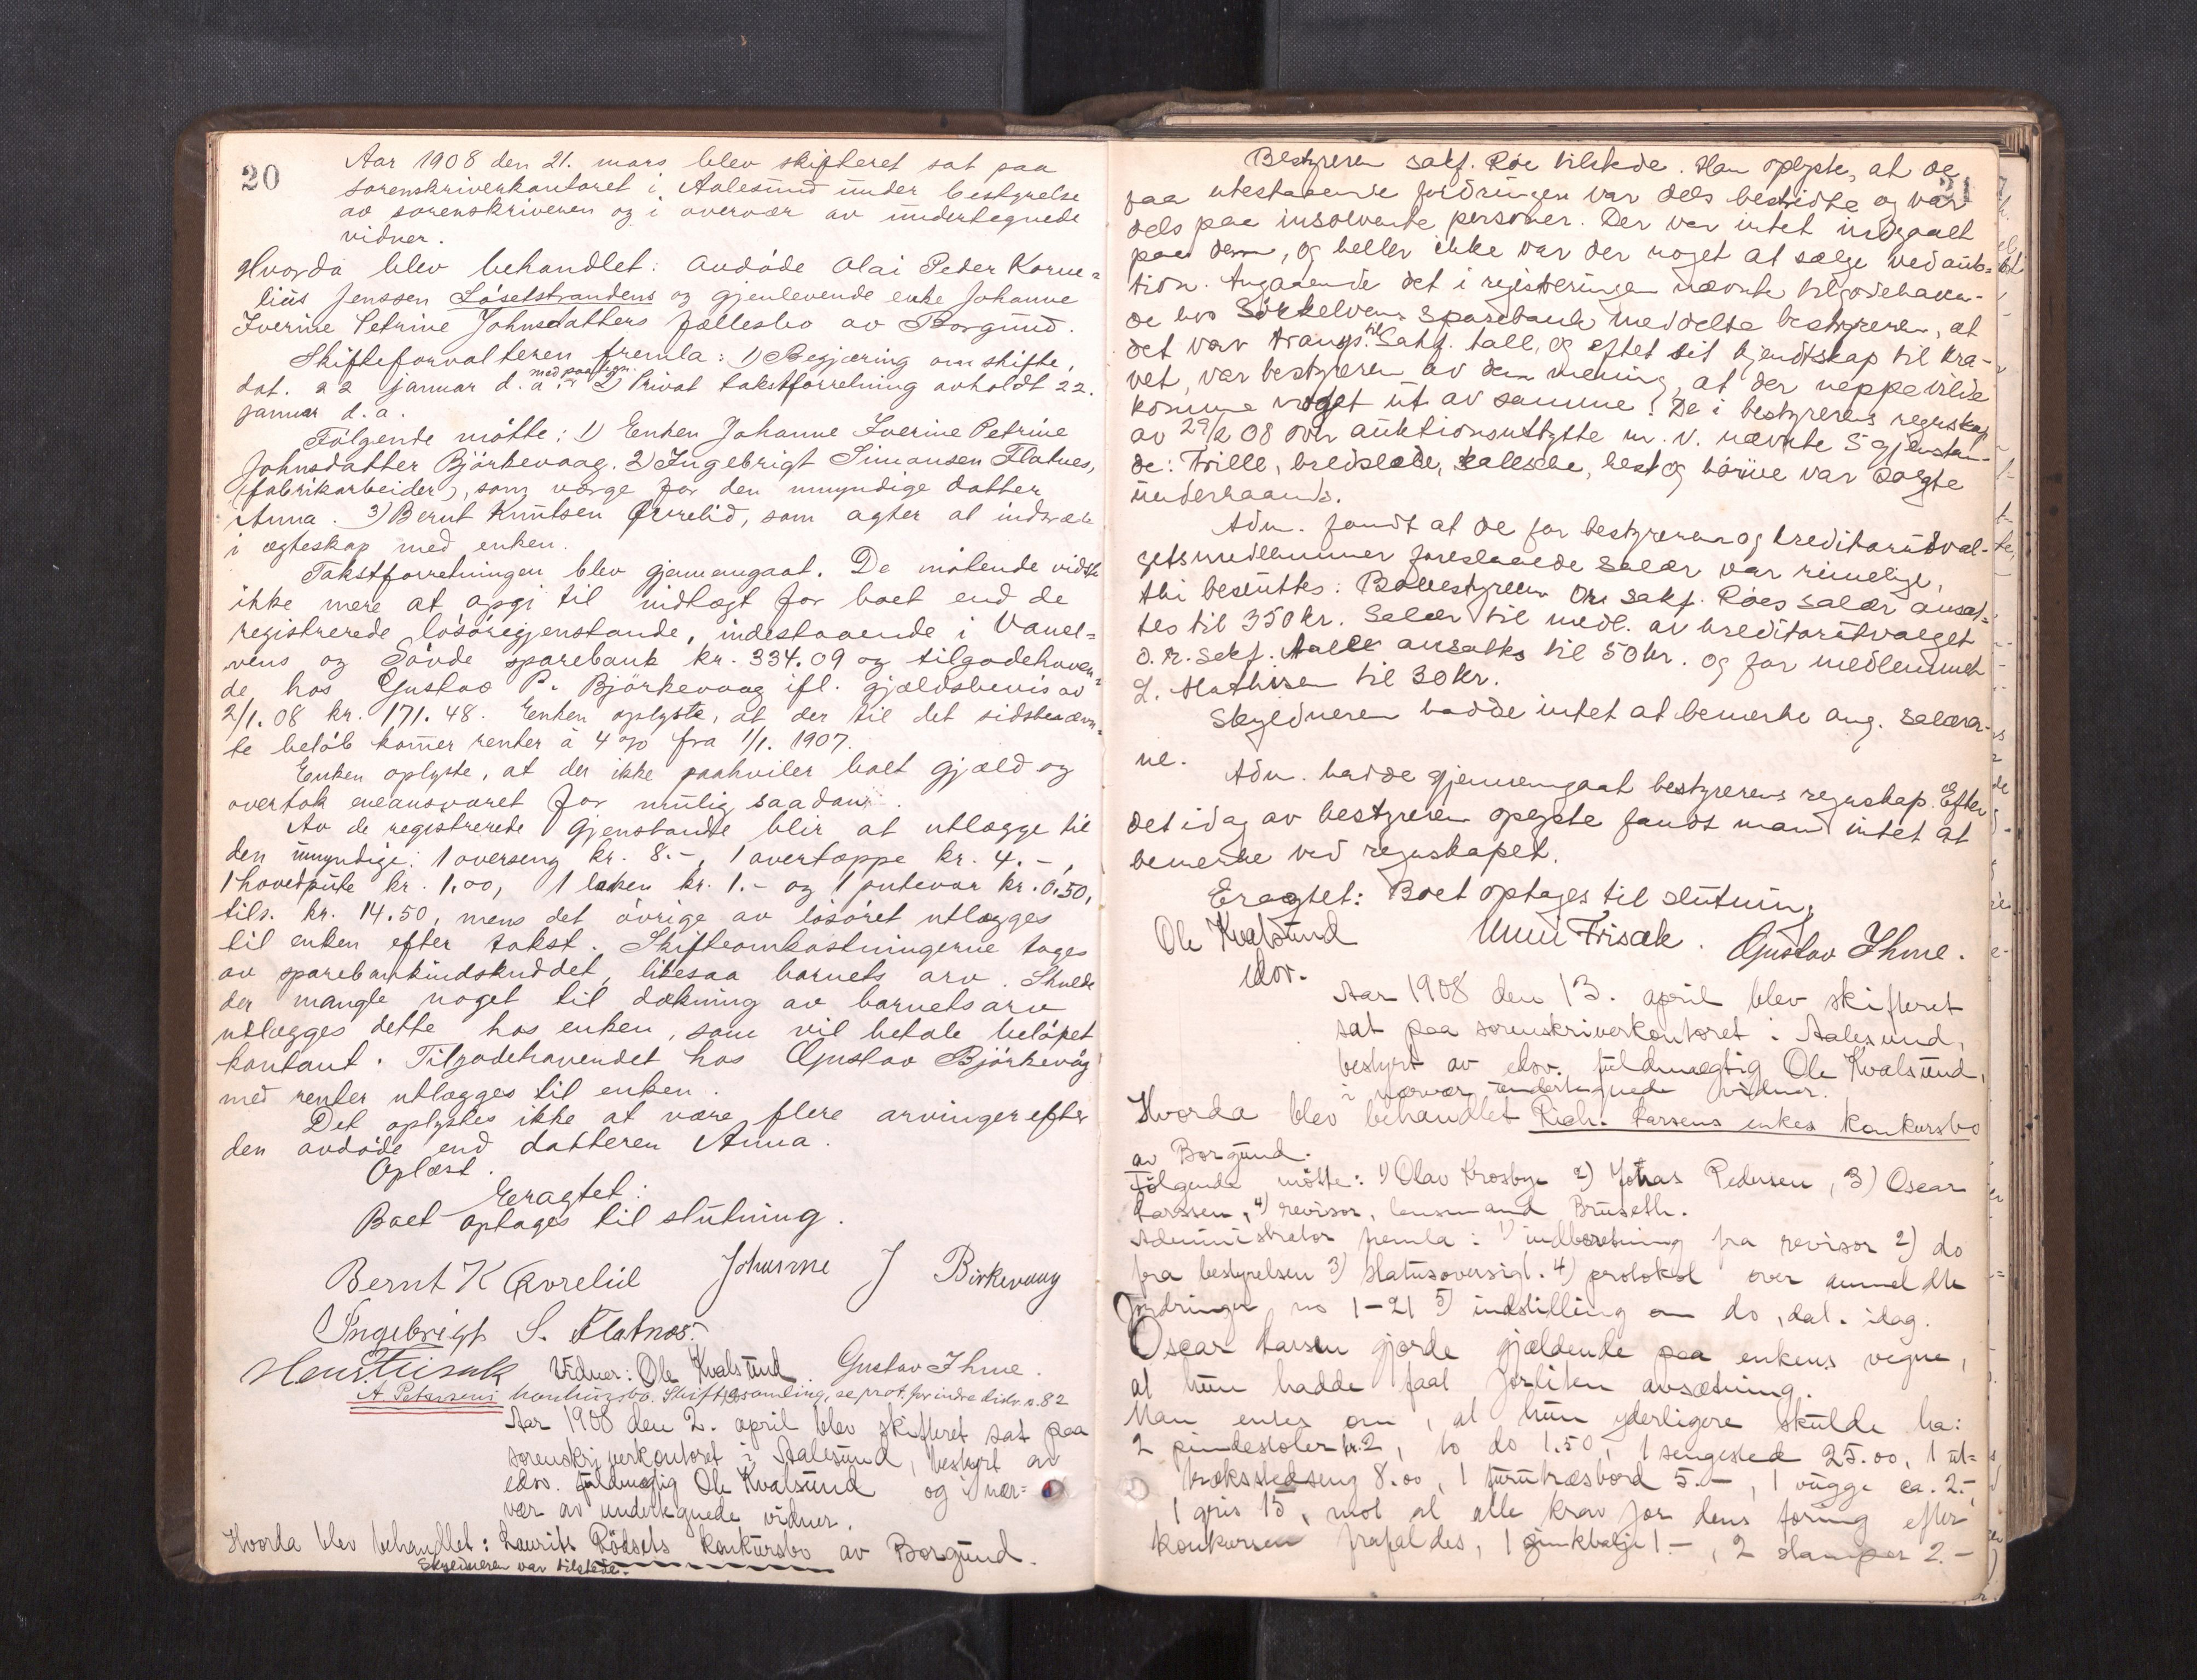 20
Aar 1908 den 21. mars blev skifteret sat paa
sorenskriverkontoret i Aalesund under bestyrelse
av sorenskriveren og i overvær av undertegnede
vidner.
Hvorda blev behandlet: avdøde Olai Peder Korne=
lius Jenssen Løsetstrandens og gjenlevende enke Johanne
Iverine Petrine Johnsdatters fællesbo av Borgund.
Skifteforvalteren fremla: 1) Begjæring om skifte,
dat. 22 januar d. a. med paategn. 2) Privat takstforretning avholdt 22.
januar d. a.
Følgende møtte: 1) Enken Johanne Iverine Petrine
Johnsdatter Björkevaag. 2) Ingebrigt Simonsen Flatnes,
(fabrikarbeider), som værge for den umyndige datter
Anna. 3) Bernt Knutsen Qvrelid, som agter at indtræde
i ægteskap med enken.
Takstforretningen blev gjennemgaat. De møtende vidste
ikke mere at opgi til indtægt for boet end de
registrerede løsøregjenstande, indestaaende i Vanel=
vens og Søvde sparebank kr. 334.09 og tilgodehaven=
de hos Gustav P. Björkevaag ifl. gjældsbevis av
2/1. 08 kr. 171.48. Enken oplyste, at der til det sidstnævn=
te beløb kommer renter à 4 % fra 1/1. 1907.
Enken oplyste, at der ikke paahviler boet gjæld og
overtok eneansvaret for mulig saadan.
Av de registrerede gjenstande blir at utlægge til
den umyndige: 1 overseng kr. 8.-, 1 overtæppe kr. 4.-,
1 hovedpute kr. 1.00, 1 laken kr. 1.- og 1 putevar kr. 0.50,
tils. kr. 14.50, mens det øvrige av løsøret utlægges
til enken efter takst. Skifteomkostningerne tages
av sparebankindskuddet, likesaa barnets arv. Skulde
der mangle noget til dækning av barnets arv
utlægges dette hos enken, som vil betale beløpet
kontant. Tilgodehavendet hos Gustav Björkevåg
med renter utlægges til enken.
Det oplystes ikke at være flere arvinger efter
den avdøde end datteren Anna.
Oplæst.
Eragtet:
Boet optages til slutning.
Bernt K Qvrelid Johanne J Birkevaag
Ingebrigt S. Flatnes.
Vidner: Ole Kvalsund Gustav Ihme.
A. Petersens konkursbo. Skiftesamling, se prot. for indre distr. s. 82
Aar 1908 den 2. april blev skifteret sat paa
sorenskriverkontoret i Aalesund, bestyrt av
edsv. fuldmægtig Ole Kvalsund og i nær=
vær av undertegnede vidner.
Hvorda blev behandlet: Laurits Rödsets konkursbo av Borgund.
Skyldneren var tilstede.
Bestyreren sakf. Röe tilstede. Han oplyste, at de
paa utestaaende fordringer var dels bestridte og var
dels paa insolvente personer. Der var intet indgaat
paa dem, og heller ikke var der noget at sælge ved auk=
tion. Angaaende det i registreringen nævnte tilgodehaven-
de hos Sökkelvens sparebank meddelte bestyreren, at
det var transp. til Sakf. Aall, og efter sit kjendtskap til kra-
vet, var bestyreren av den mening, at der neppe vilde
komme noget ut av samme. De i bestyrerens regnskap
av 29/2 08 over auktionsutbytte nr. V. nævnte 5 gjenstan-
de: Trille, bredslæde, kalesche, hest og harve var solgte
underhaands.
Adm. fandt at de for bestyreren og kreditorutval-
gets medlemmer foreslaaede salær var rimelige,
thi besluttes: Bobestyreren O.r. sakf. Röes salær ansæt=
tes til 350 kr. Salær til medl. av kreditorutvalget
o. r. sakf. Aall ansættes til 50 kr. og for medlemmet
L. Mathisen til 30 kr.
Skyldneren hadde intet at bemerke ang. salærer-
ne.
Adm. hadde gjennemgaat bestyrerens regnskap. Efter
det idag av bestyreren oplyste fandt man intet at
bemerke ved regnskapet.
Eragtet: Boet optages til slutning
Ole Kvalsund Unni Frisak. Gustav Ihme.
edsv.
Aar 1908 den 13. april blev skifteret
sat paa sorenskriverkontoret i Aalesund,
bestyrt av edsv. fuldmægtig Ole Kvalsund,
i nærvær undertegnede vidner.
Hvorda blev behandlet Rich. Larsens enkes konkursbo
av Borgund.
Følgende møtte: 1) Olav Krosbye 2) Jonas Pedersen, 3) Oscar
Larssen, 4) revisor, lensmand Bruseth.
Administrator fremla: 1) indberetning fra revisor 2) do
fra bestyrelsen 3) statusoversigt. 4) protokol over anmeldte
fordringer no 1-21 5) indstilling om do, dat. idag.
Oscar Larsen gjorde gjældende paa enkens vegne,
at hun hadde faat forliten avsætning.
Man enes om, at hun yderligere skulde ha:
2 pindestoler kr. 2, to do 1.50, 1 sengested 25.00, 1 ut=
trækssledseng 8.00, 1 furutræsbord 5.-, 1 vugge ca. 2.-,
1 gris 15, mot at alle krav for dens foring efter
konkursen frafaldes, 1 zinkbalje 1.-, 2 stamper 2.-